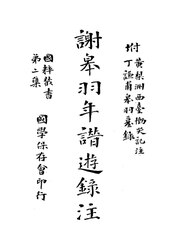 附 黃梨洲西臺慟哭記注
丁謙甫皋羽墓錄
謝皋羽年譜遊錄注
國粹叢書
第二集
國學保存會印行